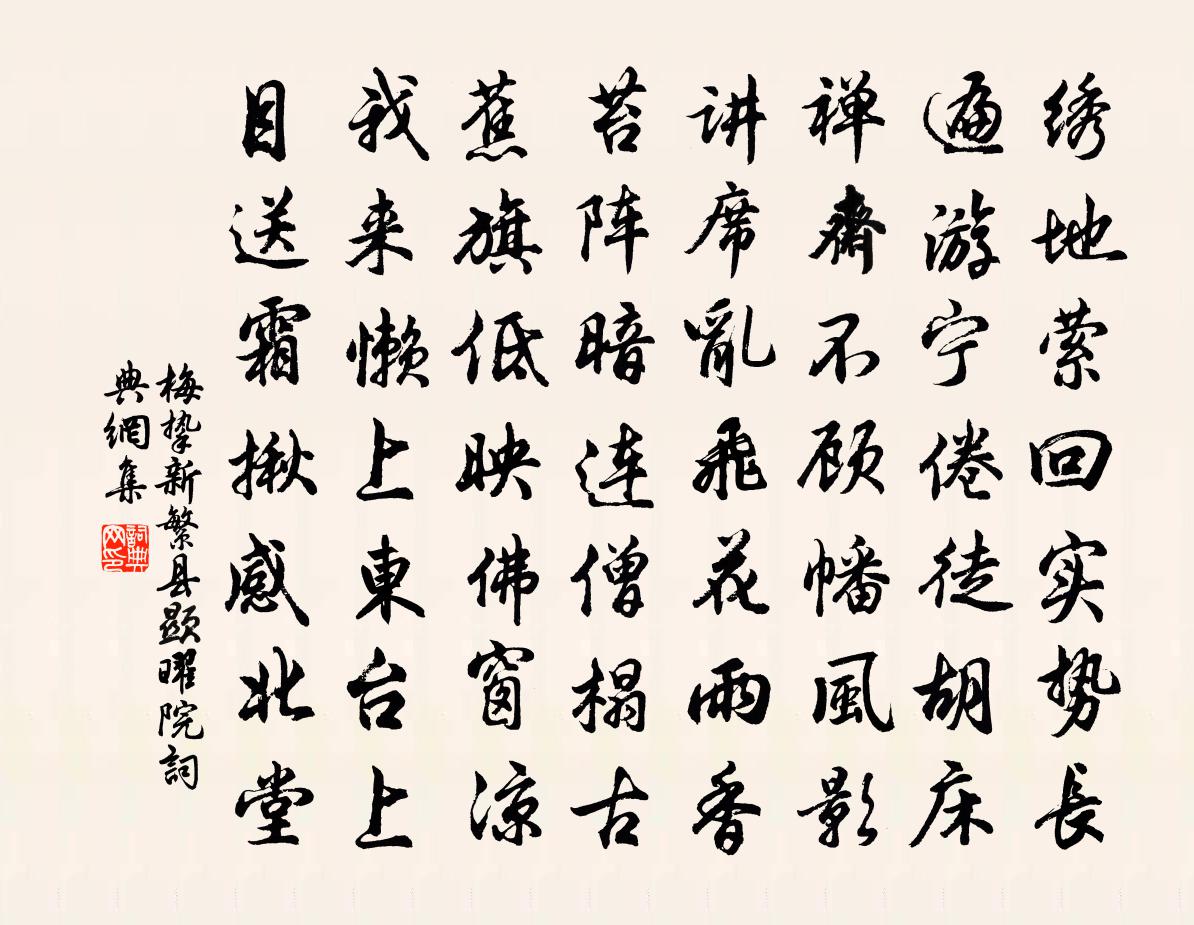 绣地萦回实势長
遍游宁倦徒胡床
禅齋不顾幡風影
讲席亂飛花雨香
苔阵暗连僧榻古
蕉旗低映佛窗凉
我来懒上東台上
目送霜揪感北堂
梅挚新繁县顯曜院詞
典網集
詞典
网印